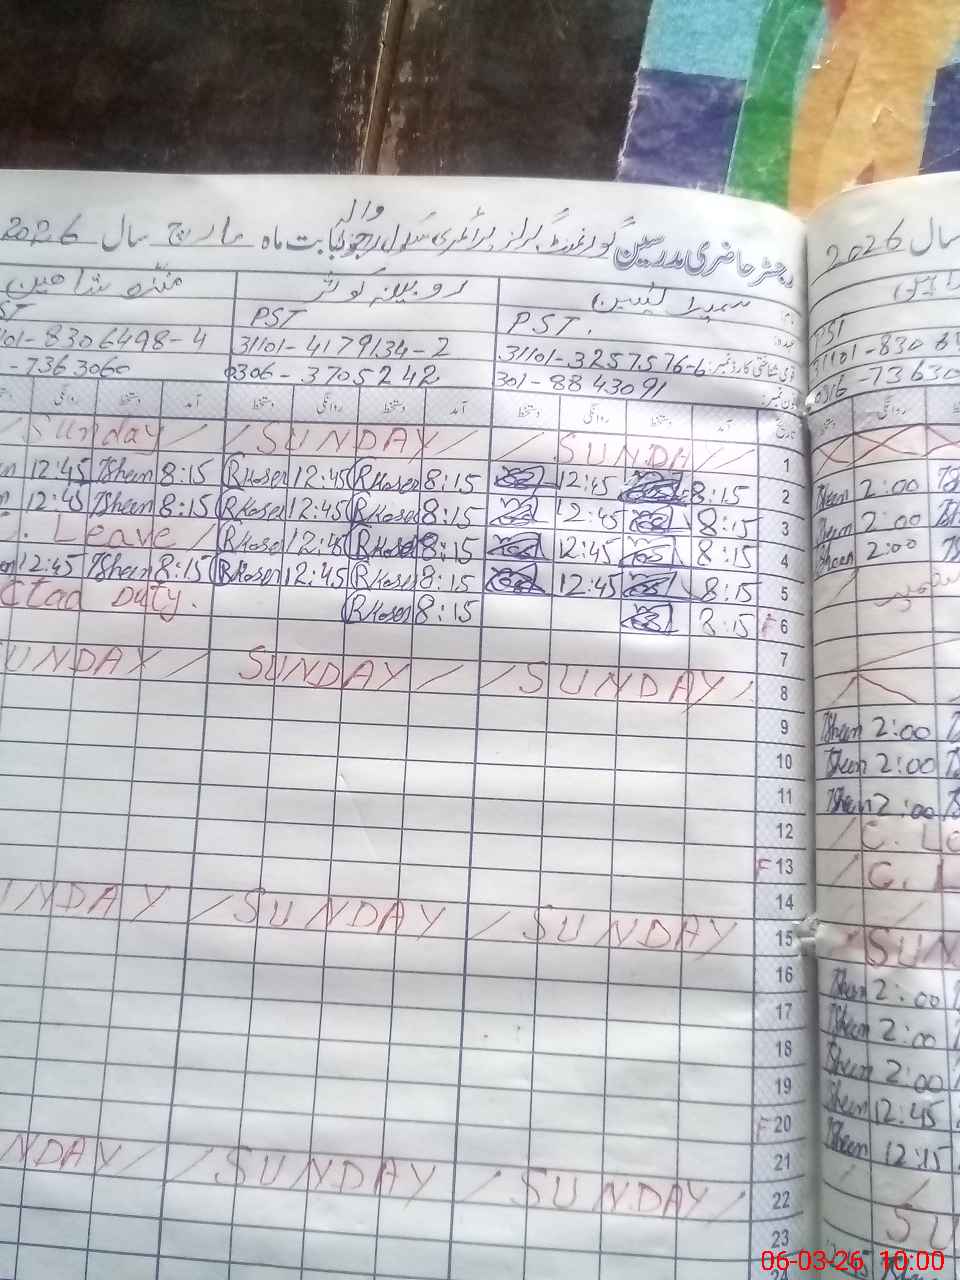 رجسٹر حاضری مدرسین گورنمنٹ گرلز پرائمری سکول والہ بابت ماہ مارچ سال 2026
سال 2026
سمیرا یٰسین روبینہ کوثر شاہین
PST. PST ST
قومی شناختی کارڈ نمبر: 31101-3257576-6 31101-4179134-2 101-8306498-4
301-8843091 0306-3705242 -7363060
تاریخ آمد دستخط روانگی دستخط آمد دستخط روانگی دستخط آمد دستخط روانگی
1 / SUNDAY / / SUNDAY / / Sunday /
2 8:15 12:45 8:15 RKoser 12:45 RKoser 8:15 TSheen 12:45
3 8:15 12:45 8:15 RKoser 12:45 RKoser 8:15 TSheen 12:45
4 8:15 12:45 8:15 RKoser 12:45 RKoser . Leave /
5 8:15 12:45 8:15 RKoser 12:45 RKoser 8:15 TSheen 12:45
F 6 8:15 8:15 RKoser Duty.
7
8 / SUNDAY / / SUNDAY / UNDAY /
9
10
11
12
F 13
14
15 / SUNDAY / SUNDAY / UNDAY
16
17
18
19
F 20
21
22 / SUNDAY / / SUNDAY / NDAY /
23
24
TSheen 2:00
TSheen 2:00
TSheen 2:00
TSheen 2:00
TSheen 2:00
TSheen 2:00
/ C. Le
/ C. L
SUN
TSheen 2:00
TSheen 2:00
TSheen 2:00
TSheen 12:45
TSheen 12:15
SU
06-03-26 10:00